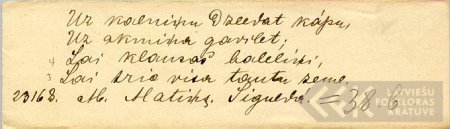 Uz kalniņu Dzeedat kāpu,
Uz akmiņa gavilet;
4 Lai klausas balelini,
3 Lai tric visa tautu zeme.
23168. M. Matiss. Sigulda. = 386
LATVIEŠU
FOLKLORAS
KRĀTUVE